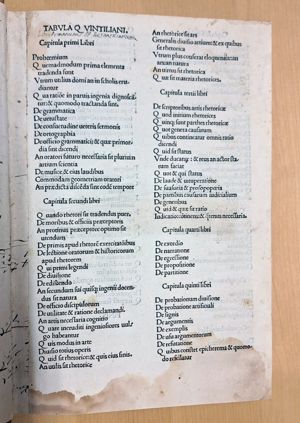 TABVLA Q. VINTILIANI.
Capitula primi Libri
Prohoemium
Quemadmodum prima elementa
tradenda sunt
Vtrum utilius domi an in scholis eru
diantur
Qua ratione in paruis ingenia dignoscã
tur: & quomodo tractanda sint.
De grammatica
De uetustate
De consuetudine uetetis sermonis
De ortographia
De officio grammatici: & quæ primor
dia dicendi
An oratori futuro necessaria sit plurium
artium scientia
De musice & eius laudibus
Commendatio geometriæ oratori
An prædicta discenda sint eodē tempore
Capitula secundi libri
Quando rhetori sit tradendus puer.
De moribus & officiis præceptoris
An protinus præceptore optimo sit
utendum
De primis apud rhetorē exercitatiōibus
De lectione oratorum & historicorum
apud rhetorem
Qui primi legendi
De diuisione
De ediscendo
An secundum sui quisq; ingenii docen
dus sit natura
De officio discipulorum
De utilitate & ratione declamandi.
An artis necessaria cognitio
Quare uerecundi ingeniosiores uul
go habeantur
Quis modus in arte
Diuisio totius operis
Quid sit rhetorice: & quis eius finis.
An utilis sit rhetorice
An rhetorice sit ars
Generalis diuisio artium: & ex quibus
sit rhetorica
Vtrum plus conferat eloquentiæ ars
an natura
An uirtus sit rhetorica
Quæ materia sit rhetorices
Capitula tertii libri
De scriptoribus artis rhetoricæ
Quod initium rhetorices
Quinq; sunt partes rhetorices
Quot genera causarum
Quibus contineatur omnis ratio
dicendi
Quid sit status
Quot & qui sit status
De laude & uituperatione
De suasoria & prosopopoeia
De partibus causarum iudicialium
De generibus
Quid & quæ sit ratio
Capitula quarti libri
De exordio
De narratione
De egressione
De propositione
De partitione
Capitula quinti libri
De probationum diuisione
De probatione artificiali
De signis
De argumentis
De exemplis
De usu argumentorum
De refutatione
Quibus constet epicherema & quomo
do refellatur